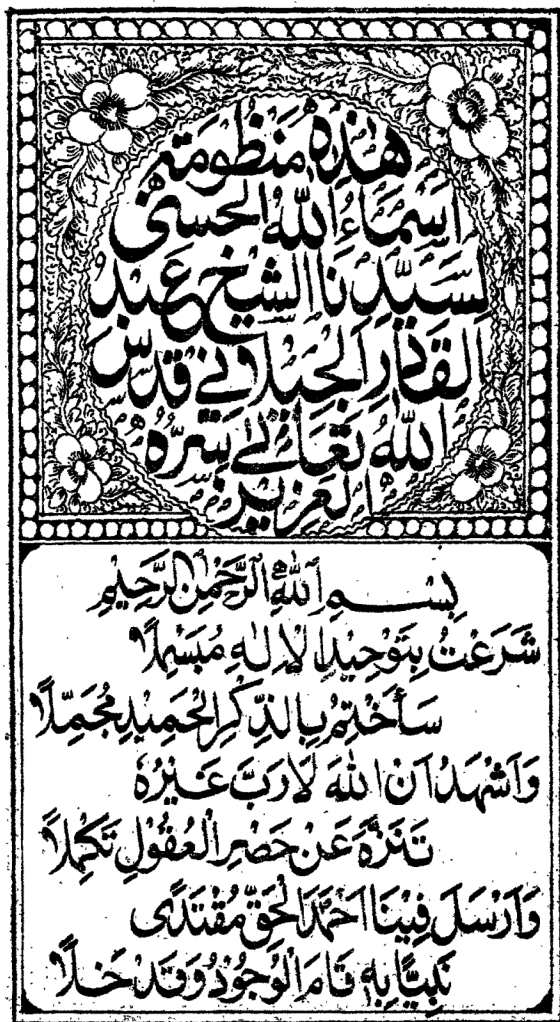 هٰذِهٖ مَنْظُومَةِ
اَسْمَاءُ اللّٰهِ الْحُسْنٰى
لِسَيِّدِنَا الشَّيْخِ عَبْدِ
الْقَادِرِ الْجِيلَانِيْ قَدَّسَ
اللّٰهُ تَعَالٰى سِرَّهُ
الْعَزِيْزِ
بِسْمِ اللّٰهِ الرَّحْمٰنِ الرَّحِيْمِ
شَرَعْتُ بِتَوْحِيْدِ الْاِلٰهِ مُبَسْمِلًا
سَأَخْتِمُ بِالذِّكْرِ الْحَمِيْدِ مُجَمِّلًا
وَاَشْهَدُ اَنَّ اللّٰهَ لَا رَبَّ غَيْرُهٗ
تَنَزَّهَ عَنْ حَصْرِ الْعُقُوْلِ تَكَمُّلًا
وَاَرْسَلَ فِيْنَا اَحْمَدَ الْحَقِّ مُقْتَدًى
نَبِيًّا بِهٖ قَامَ الْوُجُوْدُ وَقَدْ خَلَا